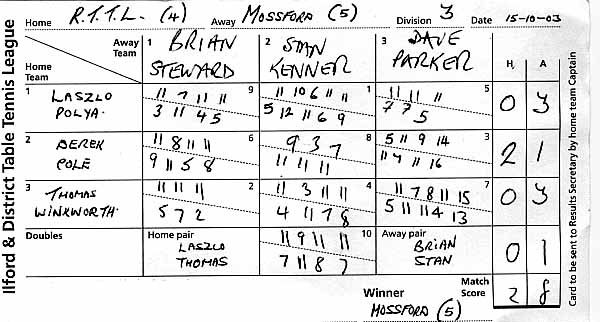 Ilford & District Table Tennis League
Home R.T.T.L. (4) Away MOSSFORD (5) Division 3 Date 15-10-03
Away Team
Home Team
1 BRIAN STEWARD
2 STAN KENNER
3 DAVE PARKER
H A
1 LASZLO
POLYA.
11 7 11 11 9
3 11 4 5
11 10 6 11 11 1
5 12 11 6 9
11 11 11 5
7 7 5
0 3
2 DEREK
COLE
11 8 11 11 6
9 11 5 8
9 3 7 8
11 11 11
5 11 9 14 3
11 7 11 16
2 1
3 THOMAS
WINKWORTH.
11 11 11 2
5 7 2
11 3 11 11 4
4 11 7 8
11 7 8 11 15 7
5 11 11 4 13
0 3
Doubles
Home pair
LASZLO
THOMAS
11 9 11 11 10
7 11 8 7
Away pair
BRIAN
STAN
0 1
Winner
MOSSFORD (5)
Match Score
2 8
Card to be sent to Results Secretary by home team Captain